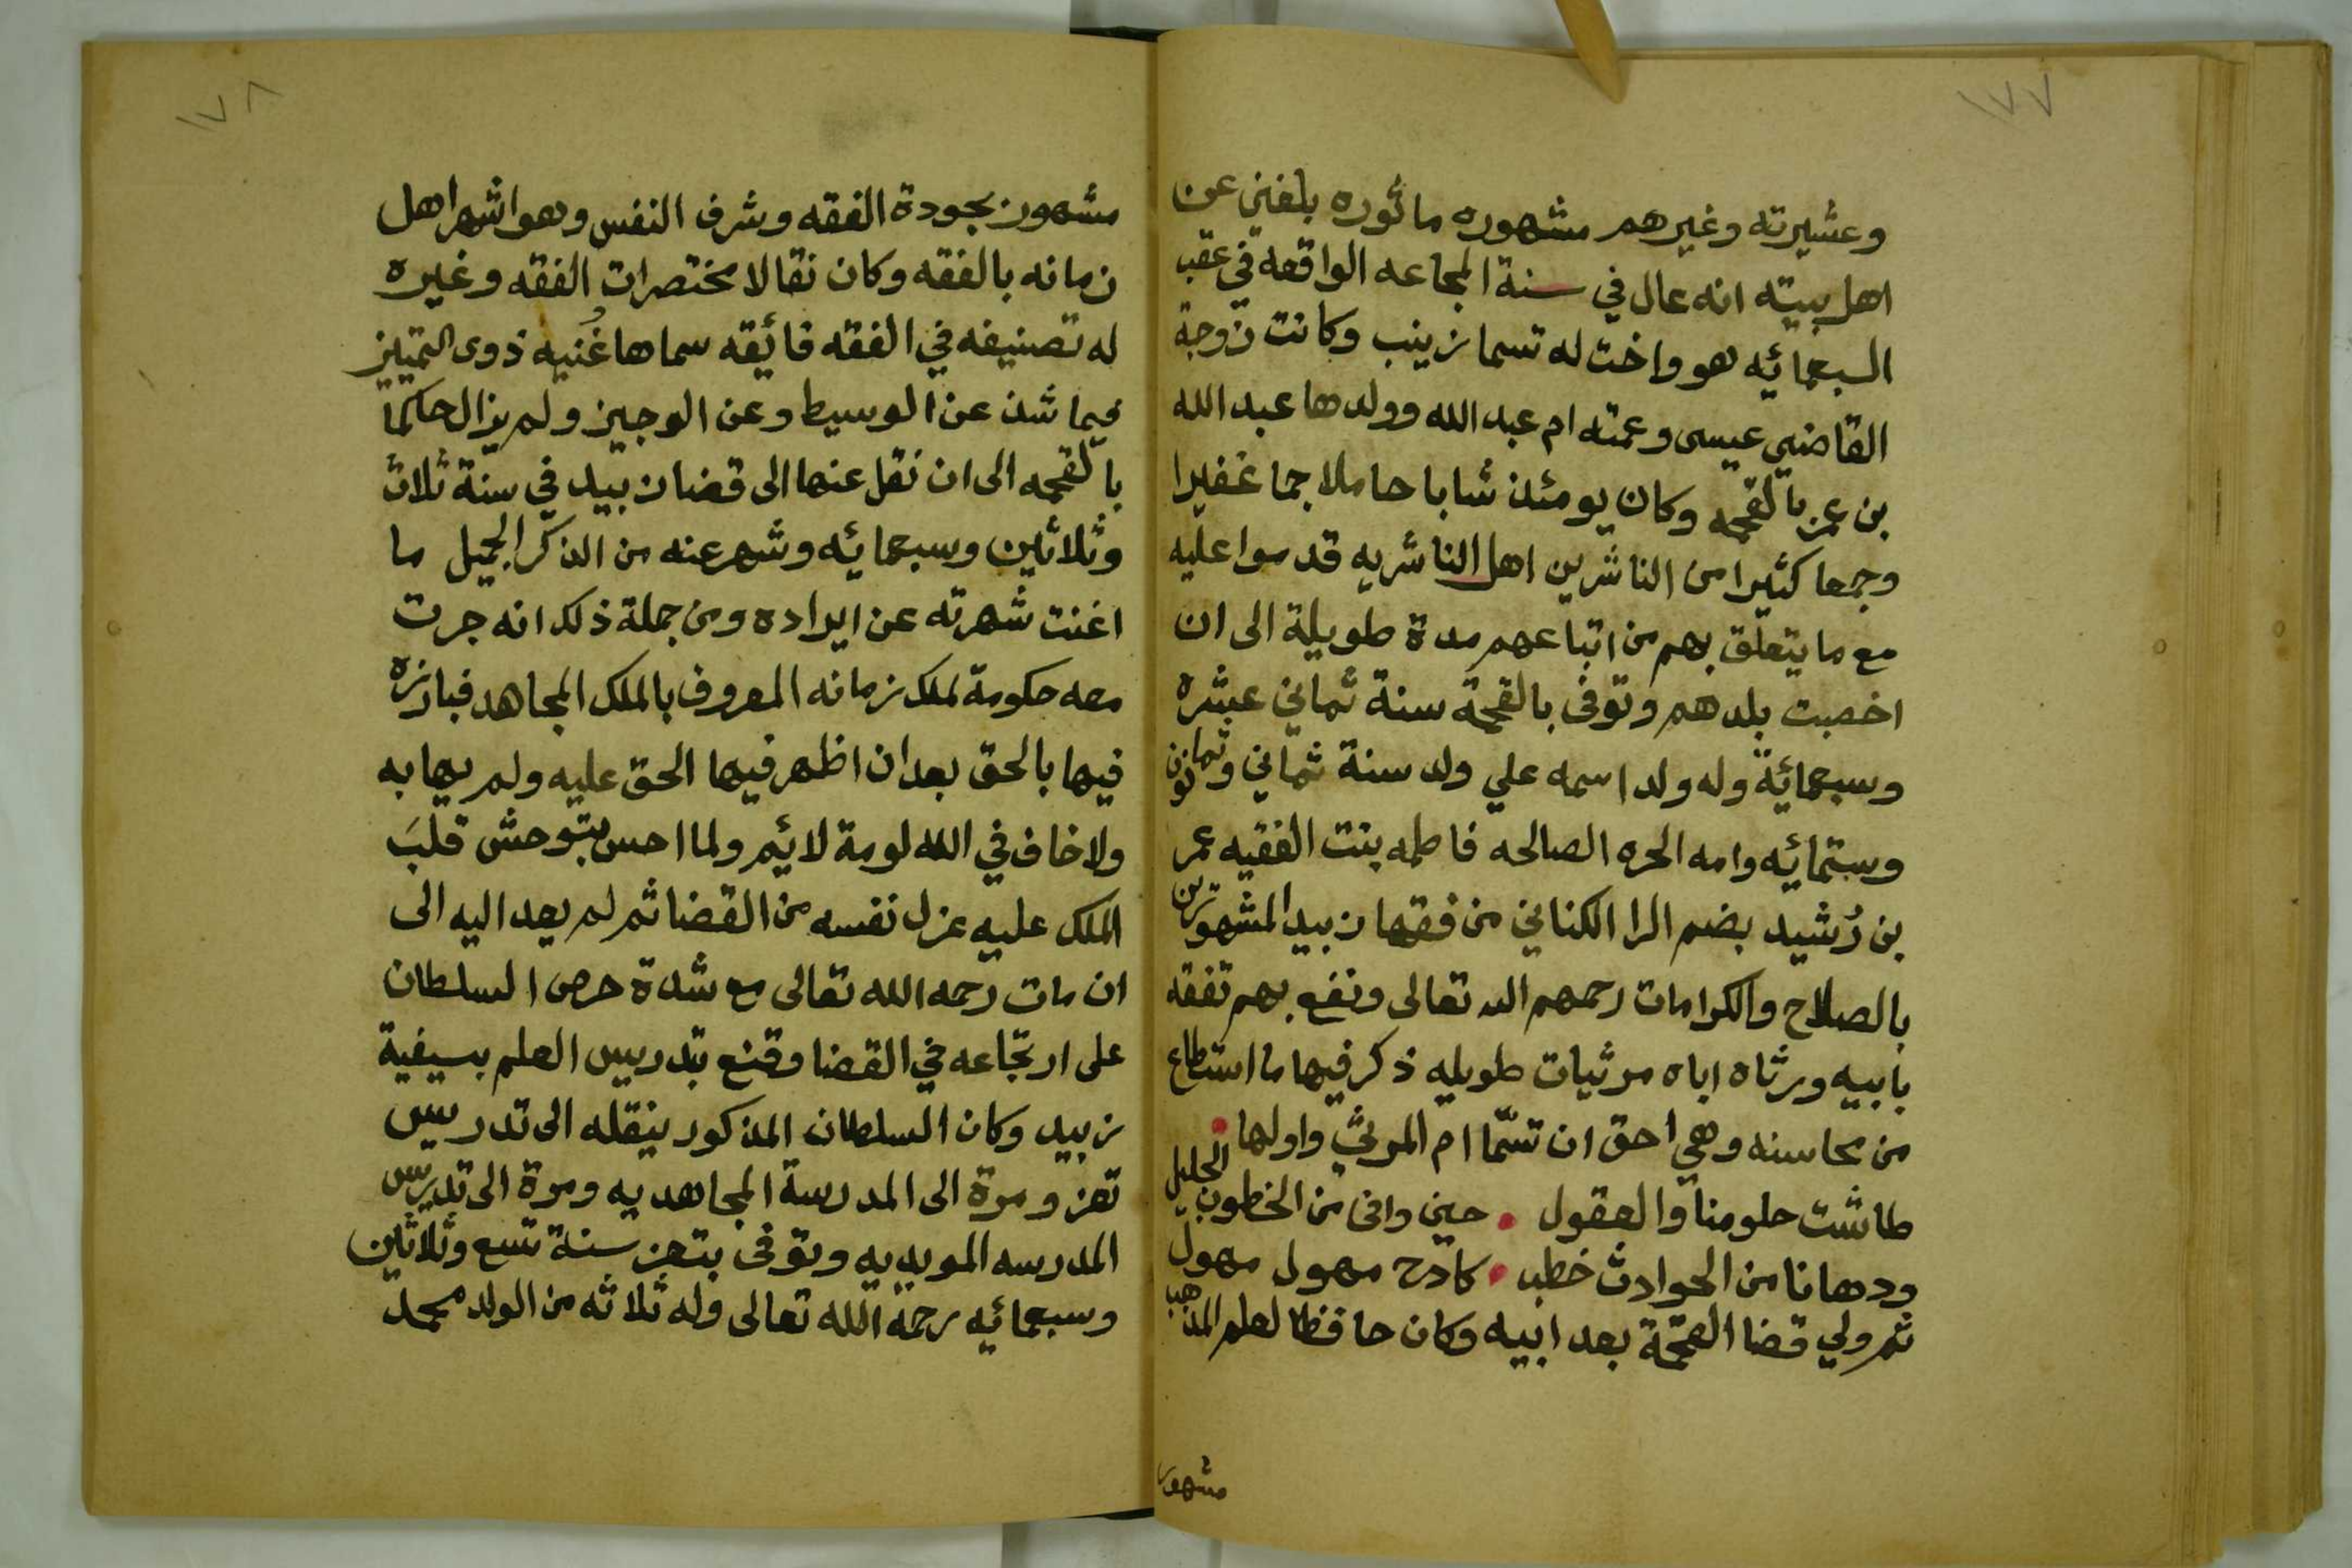 ١٧٧
وعشيرته وغيرهم مشهوره ماثوره بلغني عن
اهل بيته انه عال في سنة المجاعه الواقعه في عقب
السبعمائيه هو واخت له تسما زينب وكانت زوجة
القاضي عيسى وعمته ام عبد الله وولدها عبد الله
بن عمر بالقحمه وكان يومئذ شابا حاملا جما غفيرا
وجمعا كثيرا من الناشرين اهل الناشريه قدموا عليه
مع ما يتعلق بهم من اتباعهم مدة طويلة الى ان
اخصبت بلدهم وتوفى بالقحمة سنة ثماني عشره
وسبعمائية وله ولد اسمه علي ولد سنة ثماني وثمانون
وستمائيه وامه الحره الصالحه فاطمه بنت الفقيه عمر
بن رُشيد بضم الرا الكناني من فقها زبيد المشهورين
بالصلاح والكرامات رحمهم الله تعالى ونفع بهم تفقه
بابيه ورثاه اباه مرثيات طويله ذكر فيها ما استطاع
من محاسنه وهي احق ان تسمّا ام المرثي واولها
طاشت حلومنا والعقول . حين وافى من الخطوب الجليل
ودهانا من الحوادث خطب . كادح مهول مهول
ثم ولي قضا القحمة بعد ابيه وكان حافظا لعلم المذهب
مشهور
١٧٨
مشهور بجودة الفقه وشرف النفس وهو اشهر اهل
زمانه بالفقه وكان نقالا مختصرات الفقه وغيره
له تصنيفه في الفقه فائقه سماها غُنيه ذوى التمييز
فيما شذ عن الوسيط وعن الوجيز ولم يزال حاكما
بالقحمه الى ان نقل عنها الى قضا زبيد في سنة ثلاث
وثلاثين وسبعمائيه وشهر عنه من الذكر الجميل ما
اغنت شهرته عن ايراده ومن جملة ذلك انه جرت
معه حكومة لملك زمانه المعروف بالملك المجاهد فبارزه
فيها بالحق بعد ان اظهر فيها الحق عليه ولم يهابه
ولا خاف في الله لومة لائيم ولما احس بتوحش قلبَ
الملك عليه عزل نفسه من القضا ثم لم يعد اليه الى
ان مات رحمه الله تعالى مع شدة حرص السلطان
على ارتجاعه في القضا وقنع بتدريس العلم بسيفية
زبيد وكان السلطان المذكور ينقله الى تدريس
تعز ومرة الى المدرسة المجاهديه ومرة الى تدريس
المدرسه المويديه وتوفى بتعز سنة تسع وثلاثين
وسبعمائيه رحمة الله تعالى وله ثلاثه من الولد محمد